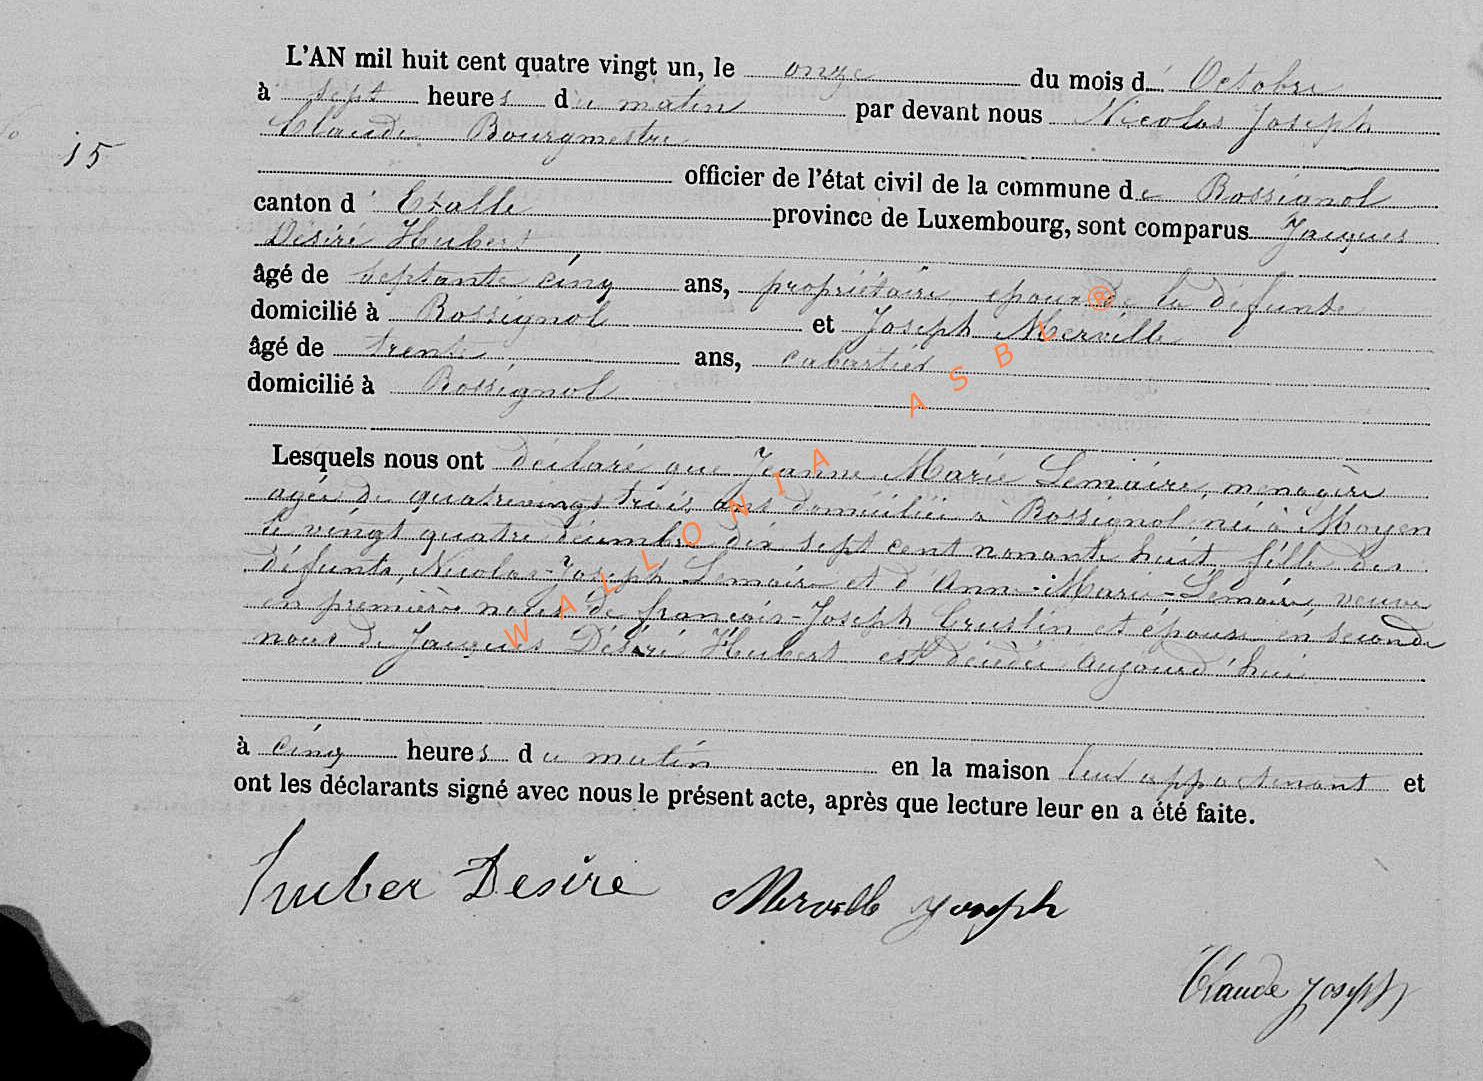 L'AN mil huit cent quatre vingt un, le onze du mois d' Octobre
à sept heures du matin par devant nous Nicolas Joseph
15
Claude Bourgmestre
officier de l'état civil de la commune de Rossignol
canton d' Etalle province de Luxembourg, sont comparus Jacques
Désiré Hubert
âgé de septante cinq ans, propriétaire epoux de la défunte
domicilié à Rossignol et Joseph Merveille
âgé de trente ans, cabartier
domicilié à Rossignol
Lesquels nous ont déclaré que Jeanne Marie Lemaire, menagère
agée de quatrevingt trois ans domiciliée à Rossignol née à Moyen
le vingt quatre décembre dix sept cent nonante huit, fille des
défunts, Nicolas-Joseph Lemaire et d'Anne-Marie-Lemaire, veuve
en première noces de françois-Joseph Gruslin et épouse en seconde
noce de Jacques Désiré Hubert est décédée aujourd'hui
à cinq heures du matin en la maison leur appartenant et
ont les déclarants signé avec nous le présent acte, après que lecture leur en a été faite.
Huber Desire Merveille Joseph
Claude Joseph
WALLONIA ASBL ®